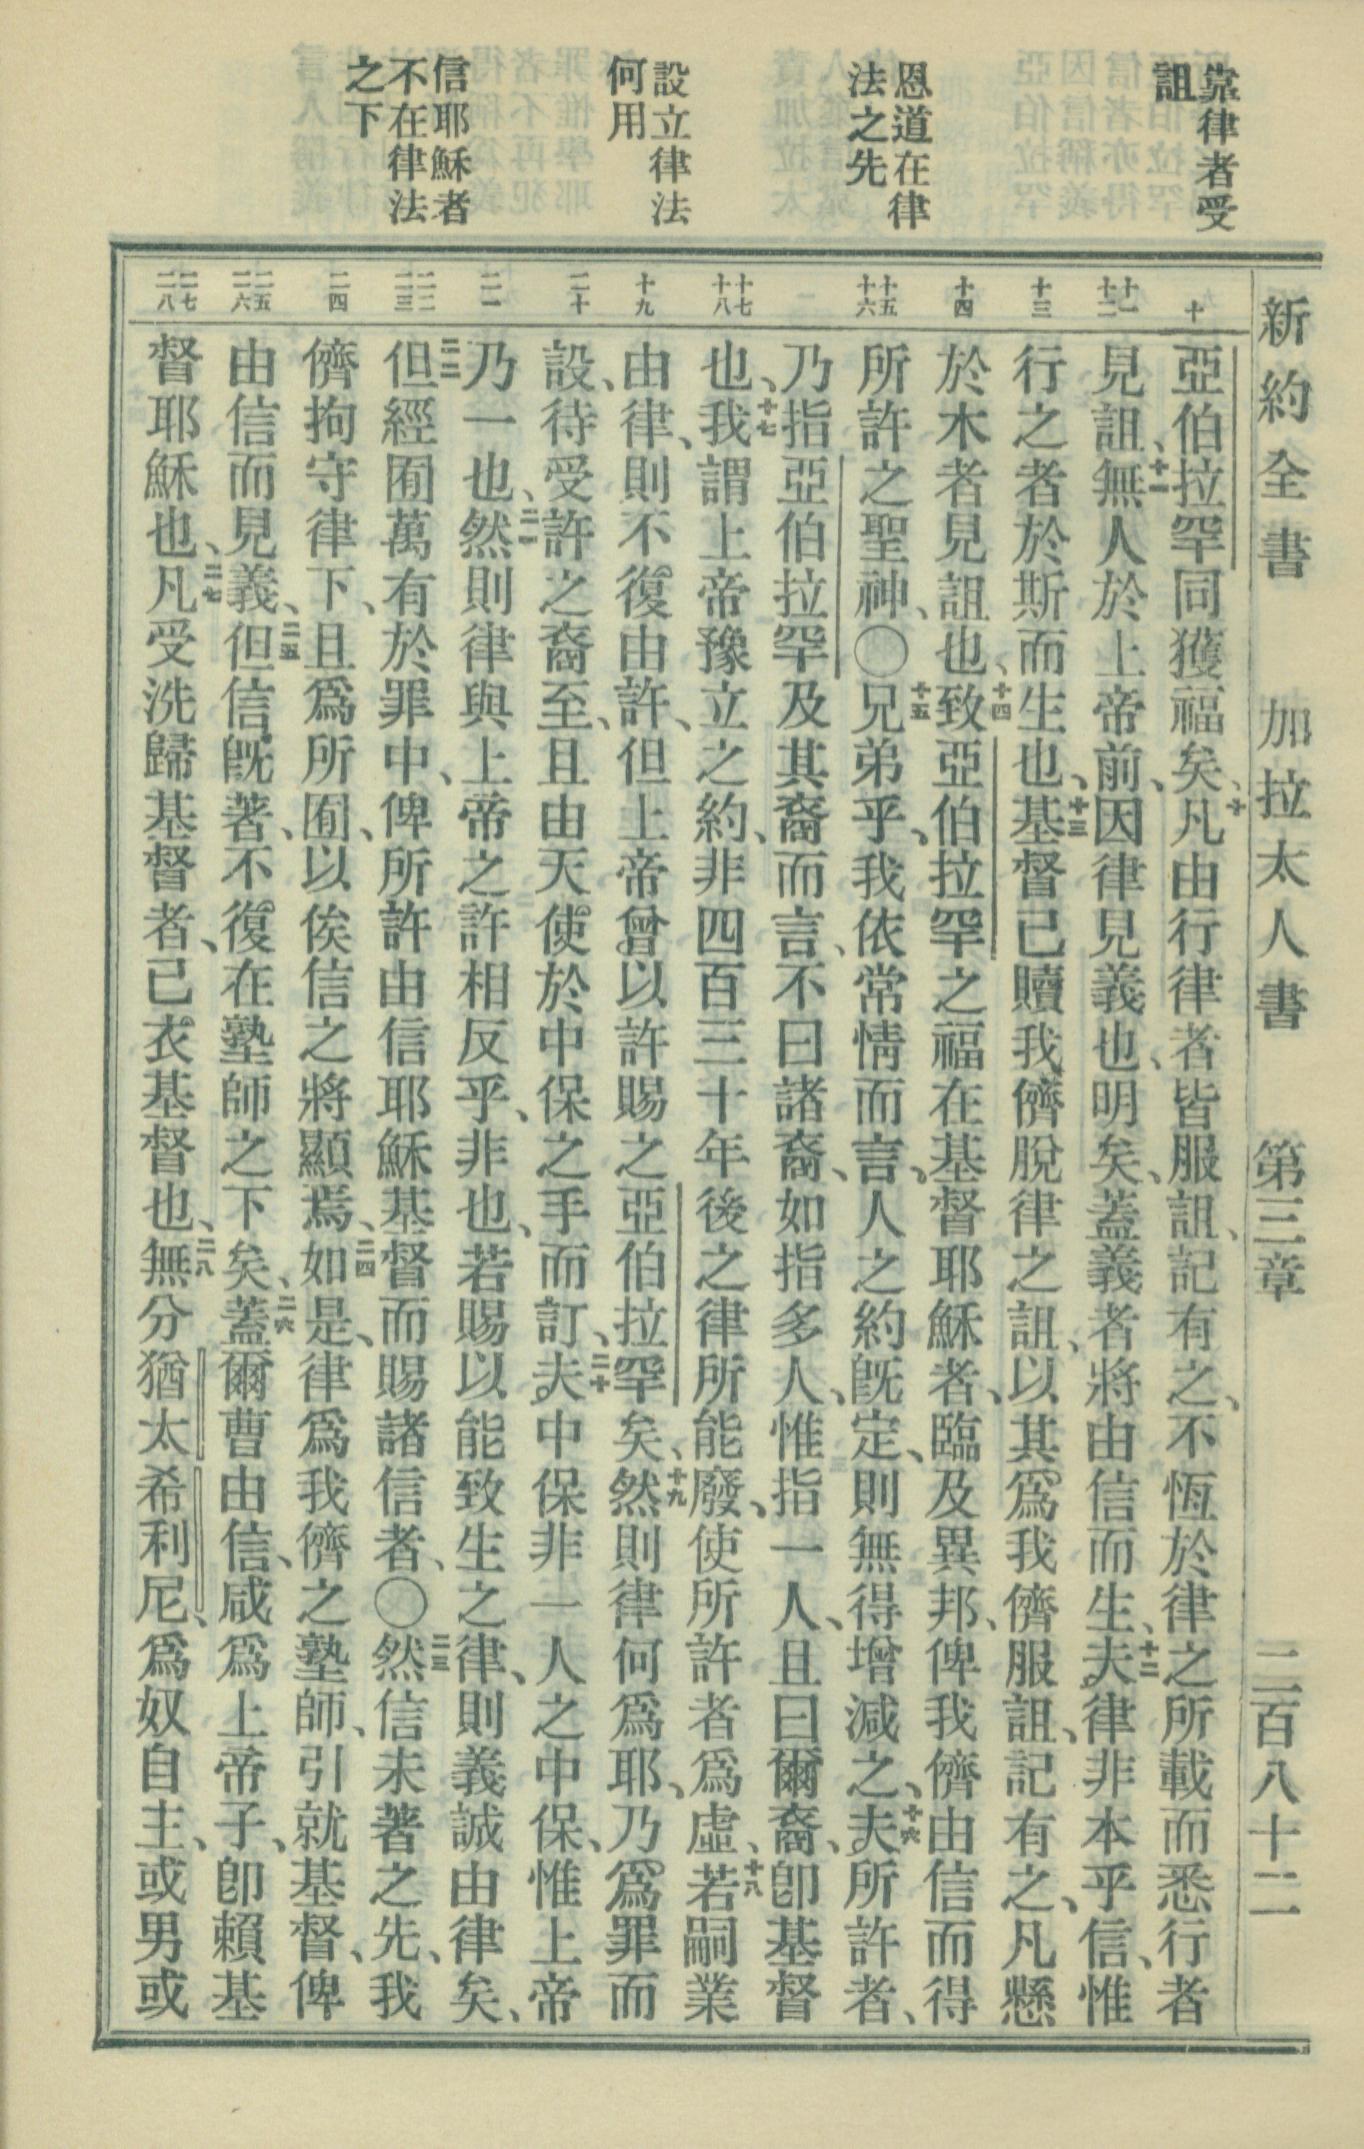 新約全書 加拉太人書 第三章 二百八十二
靠律者受
詛
恩道在律
法之先
設立律法
何用
信耶穌者
不在律法
之下
十
十一
十二
十三
十四
十五
十六
十七
十八
十九
二十
二一
二二
二三
二四
二五
二六
二七
二八
亞伯拉罕同獲福矣、十凡由行律者皆服詛、記有之、不恆於律之所載而悉行者
見詛、十一無人於上帝前、因律見義也、明矣、蓋義者將由信而生、十二夫律非本乎信、惟
行之者於斯而生也、十三基督已贖我儕脫律之詛、以其爲我儕服詛、記有之、凡懸
於木者見詛也、十四致亞伯拉罕之福在基督耶穌者、臨及異邦、俾我儕由信而得
所許之聖神、〇十五兄弟乎、我依常情而言、人之約旣定、則無得增減之、十六夫所許者、
乃指亞伯拉罕及其裔而言、不曰諸裔、如指多人、惟指一人、且曰爾裔、卽基督
也、十七我謂上帝豫立之約、非四百三十年後之律所能廢、使所許者爲虛、十八若嗣業
由律、則不復由許、但上帝曾以許賜之亞伯拉罕矣、十九然則律何爲耶、乃爲罪而
設、待受許之裔至、且由天使於中保之手而訂、二十夫中保非一人之中保、惟上帝
乃一也、二一然則律與上帝之許相反乎、非也、若賜以能致生之律、則義誠由律矣、
二二但經囿萬有於罪中、俾所許由信耶穌基督而賜諸信者、〇二三然信未著之先、我
儕拘守律下、且爲所囿、以俟信之將顯焉、二四如是、律爲我儕之塾師、引就基督、俾
由信而見義、二五但信旣著、不復在塾師之下矣、二六蓋爾曹由信、咸爲上帝子、卽賴基
督耶穌也、二七凡受洗歸基督者、已衣基督也、二八無分猶太希利尼、爲奴自主、或男或